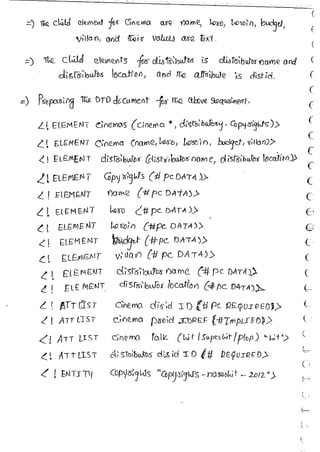 =) The child element for Cinema are name, hero, heroin, budget,
villan, and their values are Text.
=) The child elements for distributor is distributor name and
distributor location, and the attribute is distid.
=) Preparing the DTD document for the above requirement.
<! ELEMENT cinemas (cinema *, distributor y. Copyrights)>
<! ELEMENT Cinema (name, hero, heroin, budget, villan)>
<! ELEMENT distributor (distributor name, distributor location)>
<! ELEMENT Copyrights (# PC DATA)>
<! ELEMENT name (# PC DATA)>
<! ELEMENT hero (# PC DATA)>
<! ELEMENT heroin (# PC DATA)>
<! ELEMENT budget (# PC DATA)>
<! ELEMENT villan (# PC DATA)>
<! ELEMENT distributor name (# PC DATA)>
<! ELE MENT distributor location (# PC DATA)>
<! ATT LIST Cinema disid ID (# PC REQUIRED)>
<! ATT LIST cinema preid IDREF (# IMPLIED)>
<! ATT LIST Cinema talk (hit / Superhit / plop) "hit">
<! ATT LIST distributor disid ID (# REQUIRED)>
<! ENTITY Copyrights "Copyrights - nareshit - 2012">